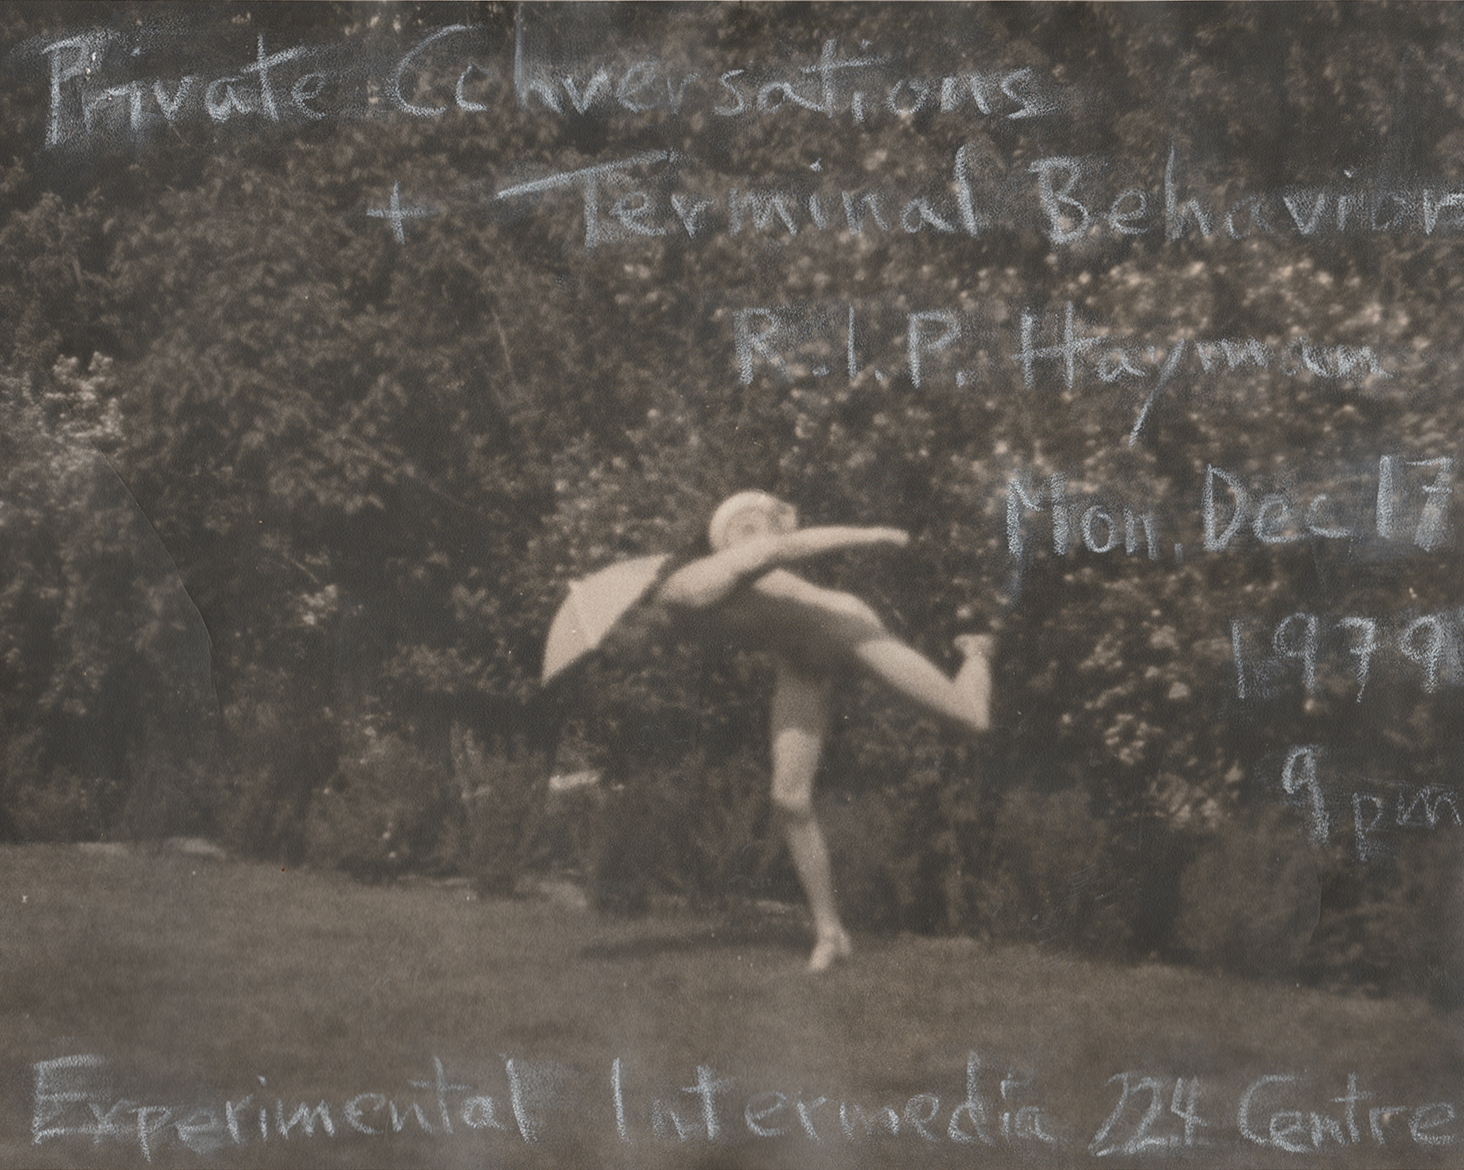 Private Conversations
+ Terminal Behavior
R.I.P. Hayman
Mon. Dec 17
1979
9 pm
Experimental Intermedia 224 Centre